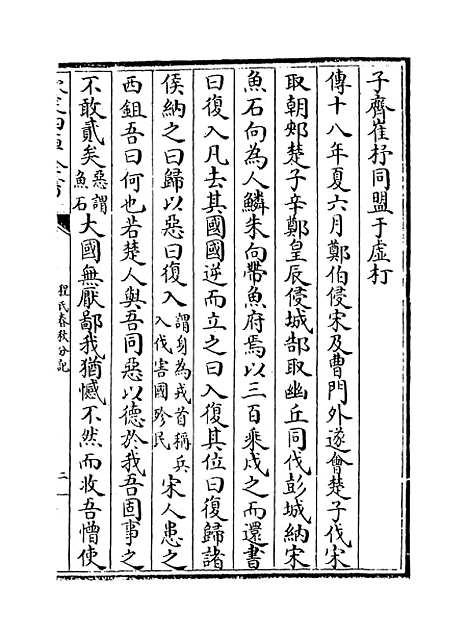 子齊崔杼同盟于虛朾
傳十八年夏六月鄭伯侵宋及曹門外遂會楚子伐宋
取朝郟楚子辛鄭皇辰侵城郜取幽丘同伐彭城納宋
魚石向為人鱗朱向帶魚府焉以三百乘戍之而還書
曰復入凡去其國國逆而立之曰入復其位曰復歸諸
侯納之曰歸以惡曰復入謂身為戎首稱兵入伐害國殄民宋人患之
西鉏吾曰何也若楚人與吾同惡以德於我吾固事之
不敢貳矣惡謂魚石大國無厭鄙我猶憾不然而收吾憎使
程氏春秋分記